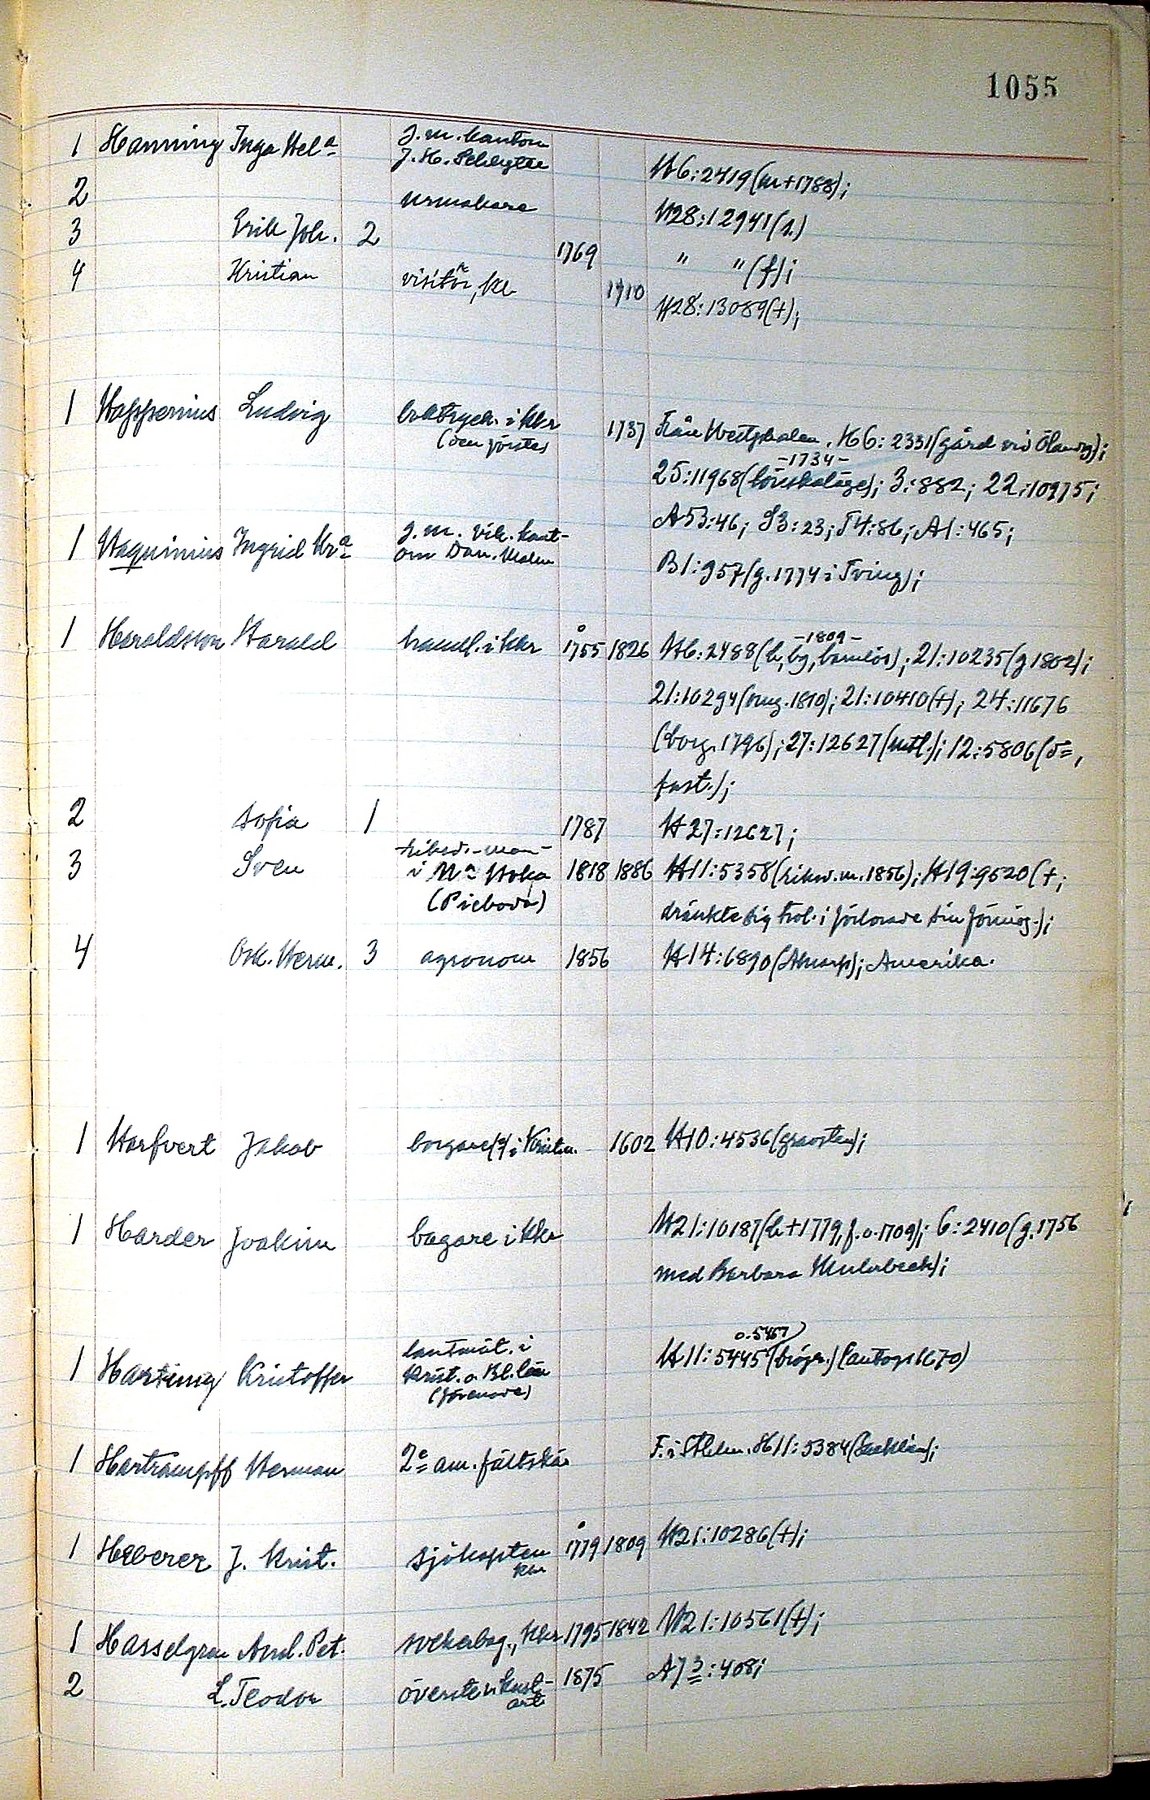 1055
1 Hanning Inga Hel<sup>a</sup> g. m. kantorn J. H. H6:2419 (m+1788);
2 urmakare H28:12941 (1.)
3 Erik Joh. 2 1769 " " (f);
4 Kristian visitör, Kkr 1910 H28:13089 (+);
1 Happenius Ludvig boktryck. i Kkr 1737 Från Westphalen. H6:2331 (gård vid Ölandsg);
(den förste) -1734-
25:11968 ; 3:882; 22:10975;
A53:46; S3:23; T4:86; A1:465;
1 Haquinius Ingrid Kr<sup>a</sup> g. m. vik. kant-
orn Dan. Malm B1:957 (g. 1774 i Tving);
1 Haraldsson Harald handl. i Kkr 1755 1826 H6:2488 (h, bg, barnlös); 21:10235 (g 1802);
-1809-
21:10294 (omg. 1810); 21:10410 (+); 24:11676
(borg. 1796); 27:12627 (mtl.); 12:5806 (d=,
fast.);
2 Sofia 1 1787 H27:12627;
3 Sven riksd.-man
i N<sup>a</sup> Hoka 1818 1886 H11:5358 (riksd. m. 1856); H19:9520 (+;
(Piebova) dränkte sig trol. i förlorade sin förmög.);
4 Osk. Herm. 3 agronom 1856 H14:6890 (Alnarp); Amerika.
1 Harfvert Jakob borgare (?) i Kristn. 1602 H10:4536 (gravsten);
1 Harder Joakim bagare i Kkr H21:10187 (h+1779, f. o. 1709); 6:2410 (g. 1756
med Barbara Mulerbeck);
1 Harting Kristoffer lantmät. i
Krist. o. Bl. län o. 5457
H11:5445 (biogr.) 1670)
1 Hartrampff Herman 2<sup>e</sup> am. fältskär F. i Sthlm. H11:5384
1 Heberer J. Krist. sjökapten
Kkr 1779 1809 H21:10286 (+);
1 Hasselgren And. Pet. sockerbag., Kkr 1795 1842 H21:10561 (+);
2 L. Teodor överste v. kust-
art 1875 A73:408;